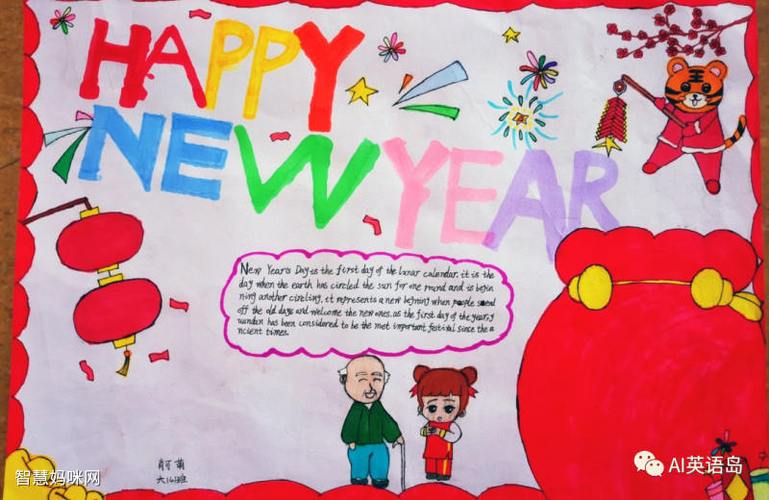 HAPPY
NEW YEAR
New Year's Day is the first day of the lunar calendar. it is the
day when the earth has circled the sun for one round and is begin
ning another circling. it represents a new beijning when people send
off the old days and welcome the new ones. as the first day of the year, y
uandan has been considered to be the most important festival since the a
ncient times.
萌
智慧妈咪网
AI英语岛